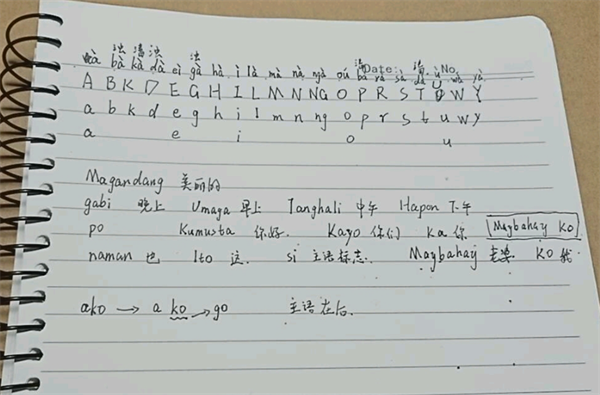 浊 清 浊 浊 清 清
bà kà dà ei gà hà i là mà nà ngà oú pà rà sà tà ù wà yà
Date: No.
A B K D E G H I L M N NG O P R S T U W Y
a b k d e g h i l m n ng o p r s t u w y
a e i o u
Magandang 美丽的
gabi 晚上 Umaga 早上 Tanghali 中午 Hapon 下午
po Kumusta 你好. Kayo 你们 ka 你 Maybahay ko
naman 也 Ito 这. si 主语标志. Maybahay 老婆 ko 我
ako → a ko → go 主语在后.